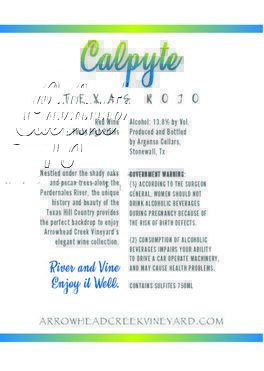 Calpyte
TEXAS ROJO
Red Wine
Alcohol: 13.8% by Vol.
Produced and Bottled
by Argenso Cellars,
Stonewall, Tx
Nestled under the shady oaks
and pecan trees along the
Perdernales River, the unique
history and beauty of the
Texas Hill Country provides
the perfect backdrop to enjoy
Arrowhead Creek Vineyard's
elegant wine collection.
River and Vine
Enjoy it Well.
GOVERNMENT WARNING:
(1) ACCORDING TO THE SURGEON
GENERAL, WOMEN SHOULD NOT
DRINK ALCOHOLIC BEVERAGES
DURING PREGNANCY BECAUSE OF
THE RISK OF BIRTH DEFECTS.
(2) CONSUMPTION OF ALCOHOLIC
BEVERAGES IMPAIRS YOUR ABILITY
TO DRIVE A CAR OPERATE MACHINERY,
AND MAY CAUSE HEALTH PROBLEMS.
CONTAINS SULFITES 750ML
ARROWHEADCREEKVINEYARD.COM